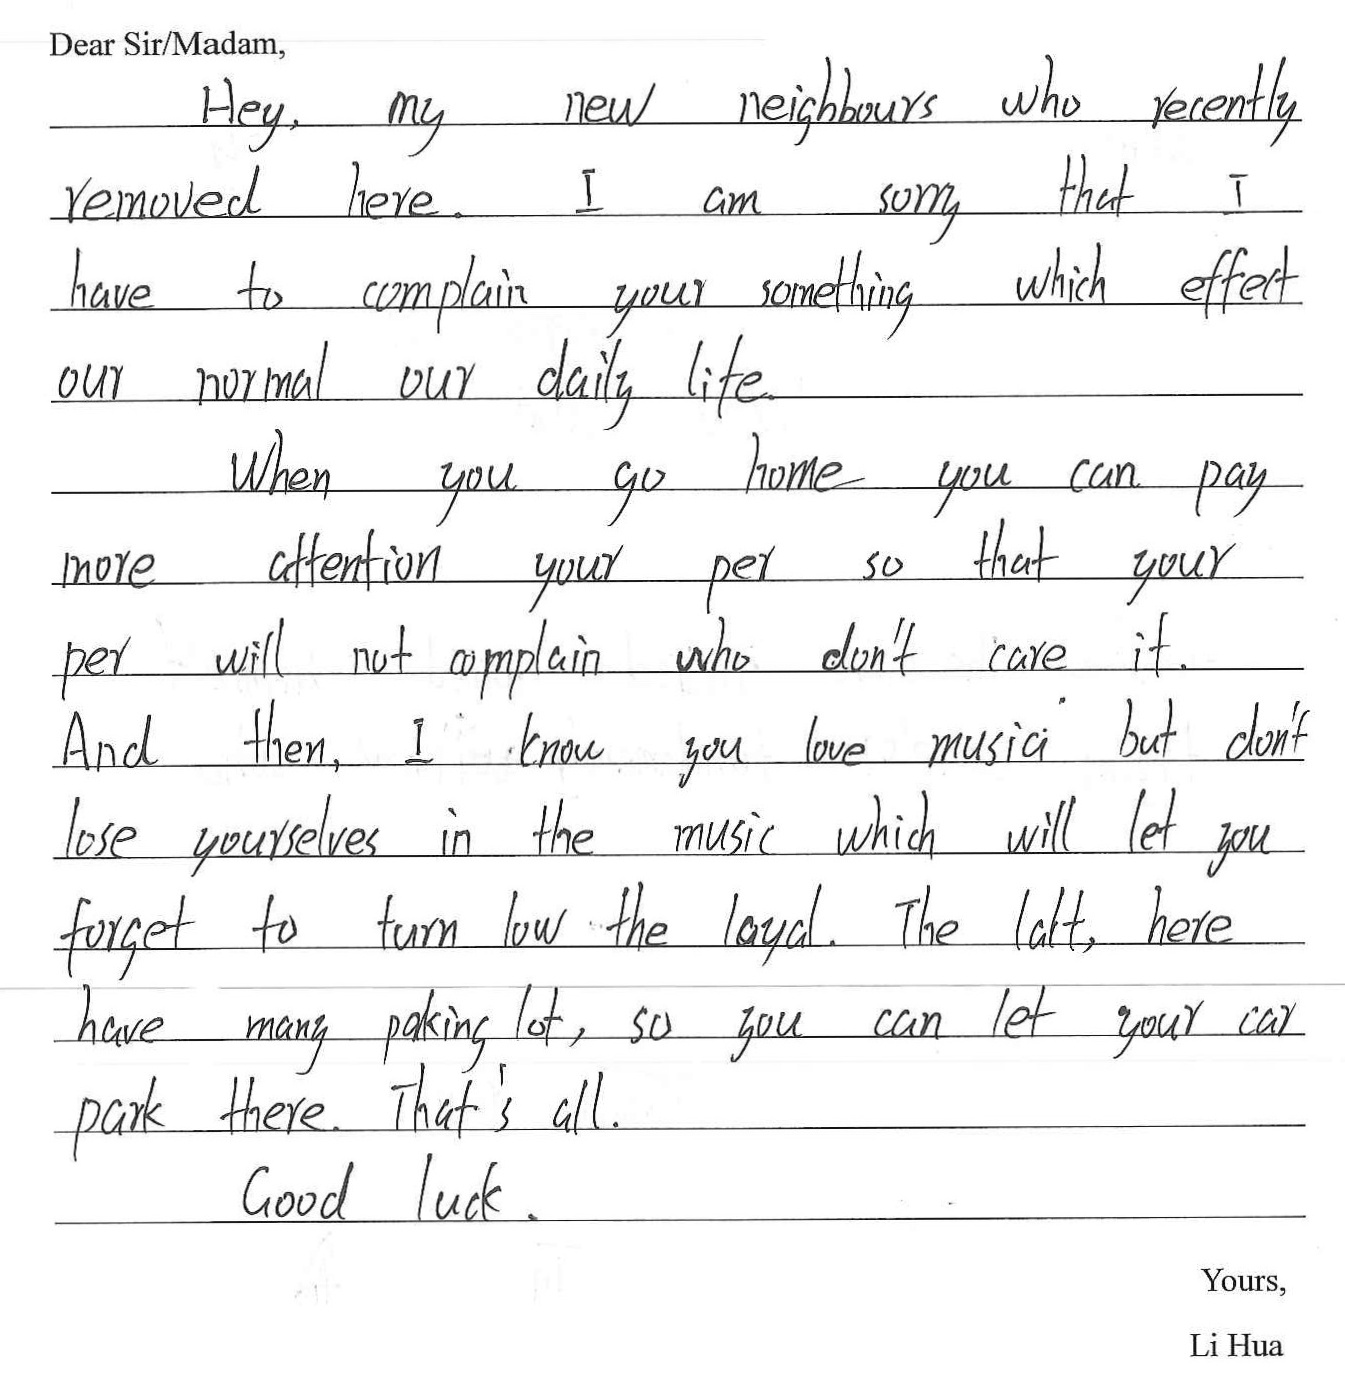 Dear Sir/Madam,
Hey, my new neighbours who recently
removed here. I am sorry that I
have to complain your something which effect
our normal our daily life.
When you go home you can pay
more attention your per so that your
per will not complain who don't care it.
And then, I know you love music but don't
lose yourselves in the music which will let you
forget to turn low the layal. The latt, here
have many paking lot, so you can let your car
park there. That's all.
Good luck.
Yours,
Li Hua